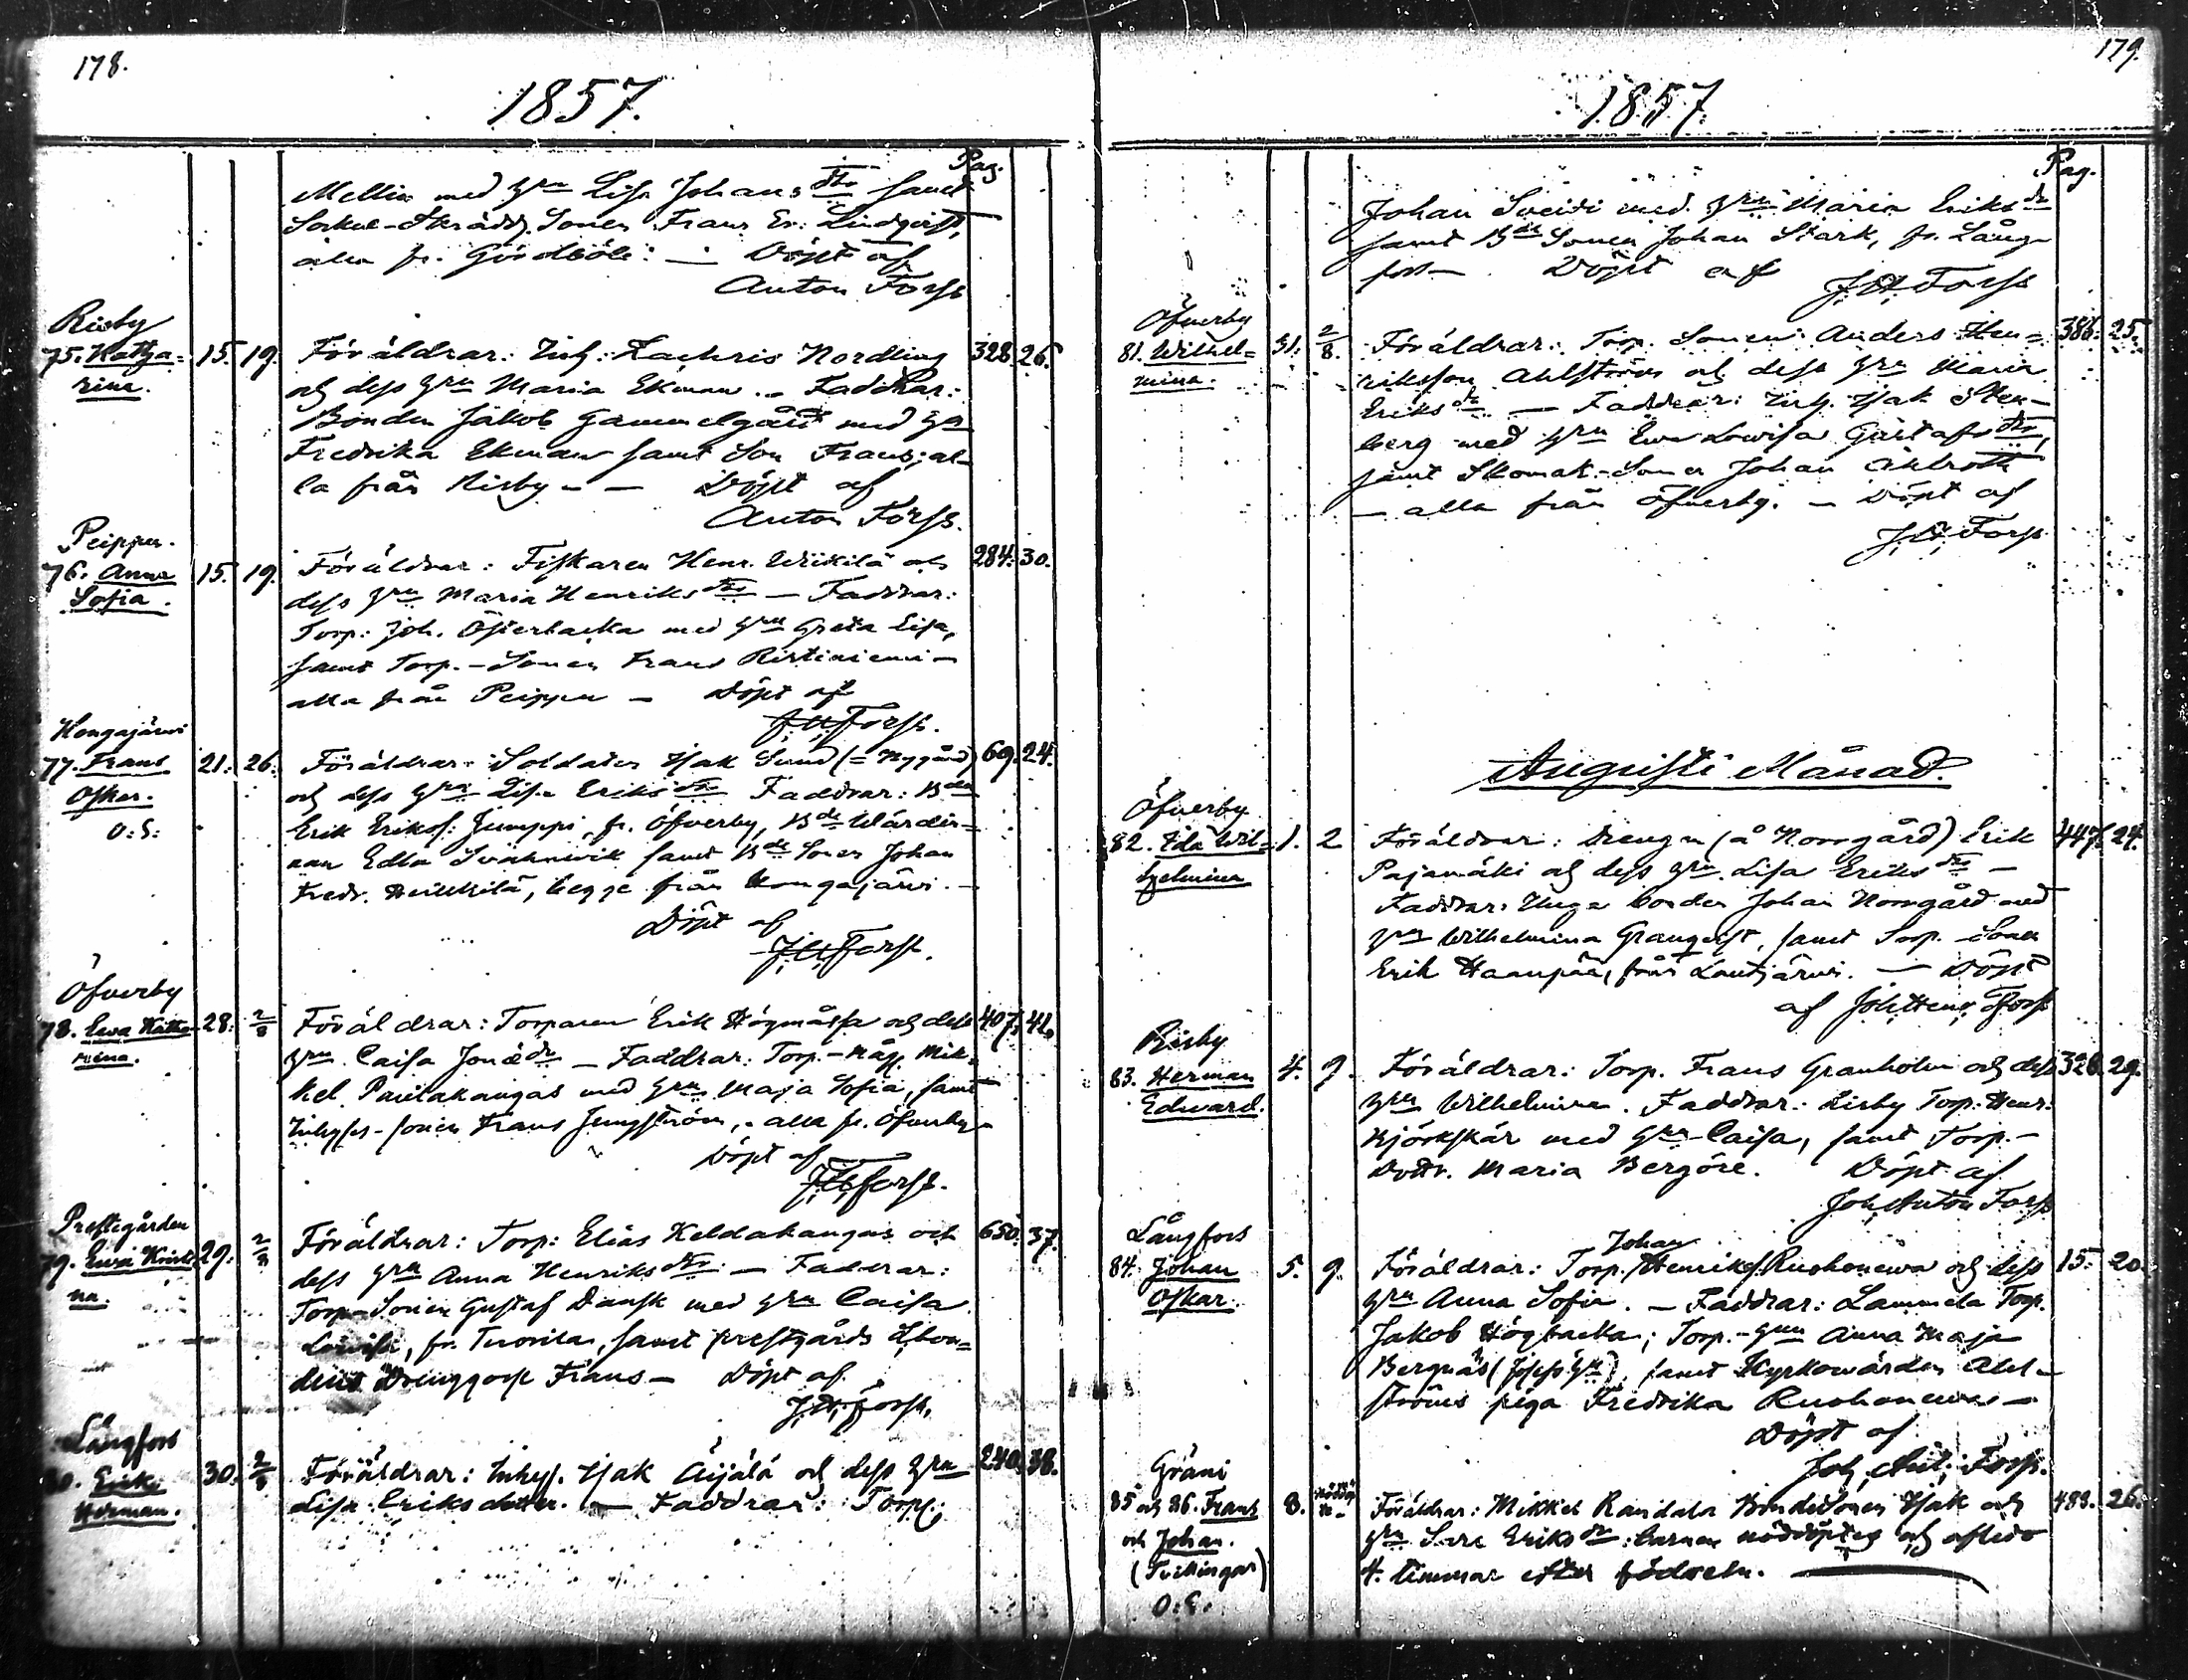 178.
1857.
Pag.
Mellin med hru Lisa Johans dtr samt
Sonen Frans Er. Lindqvist,
alla fr. Gördböle: — Döpt af
Anton Forss
Risby
75. Kattja= 15. 19. Föräldrar: Inh: Zachris Nordling 328. 26.
rina. och dess hru Maria Ekman. – Faddrar:
Bonden Jakob Gammelgård med h
Fredrika Ekman samt Son Frans; al-
la från Risby – — Döpt af
Anton Forss.
Peippu.
76. Anna 15. 19. Föräldrar: Fiskaren Henr. Wiikilä och 284. 30.
Sofia. dess hru Maria Henriks dtr — Faddrar:
Torp: Joh. Österbacka med hru Greta Lisa,
samt Torp.-Sonen Frans Ristiniemi –
alla från Peippu — Döpt af
J.A. Forss.
Hongajärvi
77. Frans 21. 26. Föräldrar: Soldaten Isak Sund (= Nygård) 69. 24.
Oskar. och dess hru Lisa Eriks dtr Faddrar: Bden
O:S: Erik Eriks: Jumppi, fr. Öfverby, Bde Wärdin=
nan Edla Svahnvik samt Bde Sonen Johan
Fredr. Heikkilä, begge från Hongajärvi. –
Döpt af
J.A. Forss.
Öfverby
78. Ewa Katta 28. 2/8 Föräldrar: Torparen Erik Högmåssa och dess 407. 42.
rina. hru Caisa Jonæ dr — Faddrar: Torp.-måg Mik=
kel Pantakangas med hru Maja Sofia, samt
Inhyses-sonen Frans Jungström, – alla fr. Öfverby
Döpt af
J.A. Forss.
Prestegården
79. Ewa Kristi 29. 2/8 Föräldrar: Torp: Elias Keldakangas och 650. 37.
na. dess hru Anna Henriks dtr: — Faddrar:
Torp-Sonen Gustaf Dansk med hru Caisa
Lovisa, fr. Tuorila, samt prestgårds Åbon=
dens Drenggosse Frans — Döpt af
J.A. Forss.
Långfors
80. Erik 30. 2/8 Föräldrar: Inhys. Isak Äijälä och dess hru 240. 38.
Herman. Lisa Eriksdotter. — Faddrar: Torp:
179.
1857.
Pag.
Johan Sveidi med hru Maria Eriks dr
samt Bde Sonen Johan Stark, fr. Lång-
fors — Döpt af
J.A. Forss
Öfverby
81. Wilhel= 31. 2/8. Föräldrar: Torp. Sonen Anders Hen= 386. 25.
mina. riksson Ahlström och dess hru Maria
Eriks dr — Faddrar: Inh. Isak Sten-
berg med hru Ewa Lowisa Gustafs dtr,
samt Skomak.-Sonen Johan Ahlroth
— alla från Öfverby. — Döpt af
J.A. Forss
Augusti Månad.
Öfverby
82. Ida Wil= 1. 2 Föräldrar: Drengen (å Norrgård) Erik 447. 24.
helmina Pajamäki och dess hru Lisa Eriks dtr —
Faddrar: Unga bonden Johan Norrgård med
hru Wilhelmina Granqvist, samt Torp.-Sonen
Erik Haanpää, från Lautjärvi. — Döpt
af Joh. Henr. Forss
Risby
83. Herman 4. 9. Föräldrar: Torp. Frans Granholm och dess 326. 29.
Edward. hru Wilhelmina. Faddrar: Risby Torp: Henr:
Björkskär med hru Caisa, samt Torp.-
Dottr. Maria Bergöre. Döpt af
Joh Anton Forss
Långfors
Johan
84. Johan 5. 9. Föräldrar: Torp. Henriks. Ruohonewa och dess 15. 20.
Oskar. hru Anna Sofia. — Faddrar: Lammela Torp.
Jakob Högbacka; Torp.-hru Anna Maja
Bergnäs (Josefs hru), samt Kyrkowärden Ahl-
ströms piga Fredrika Ruohonewa —
Döpt af
Joh. Ant. Forss.
Gräni
85 och 86. Frans 8. nöddöp- Föräldrar: Mikkel Randala Bondesonen Isak och 488. 26.
och Johan. te. hru Sara Eriks dr: barnen nöddöptes och afledo
(Tvillingar) 4. timmar efter födseln.
O:S: